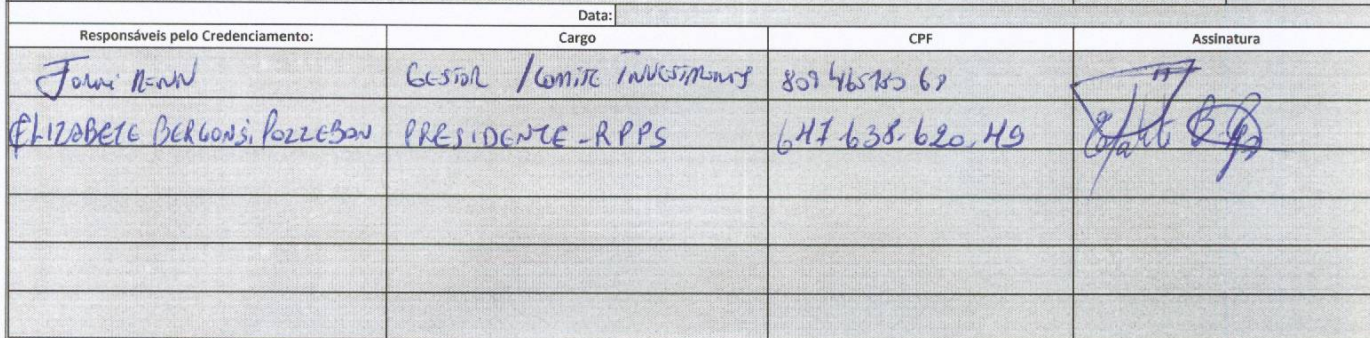 Data:
Responsáveis pelo Credenciamento: Cargo CPF Assinatura
GESTOR / COMITE INVESTIMENTOS
ELIZABETE BERGONSI POZZEBON PRESIDENTE - RPPS 647.638.620.49